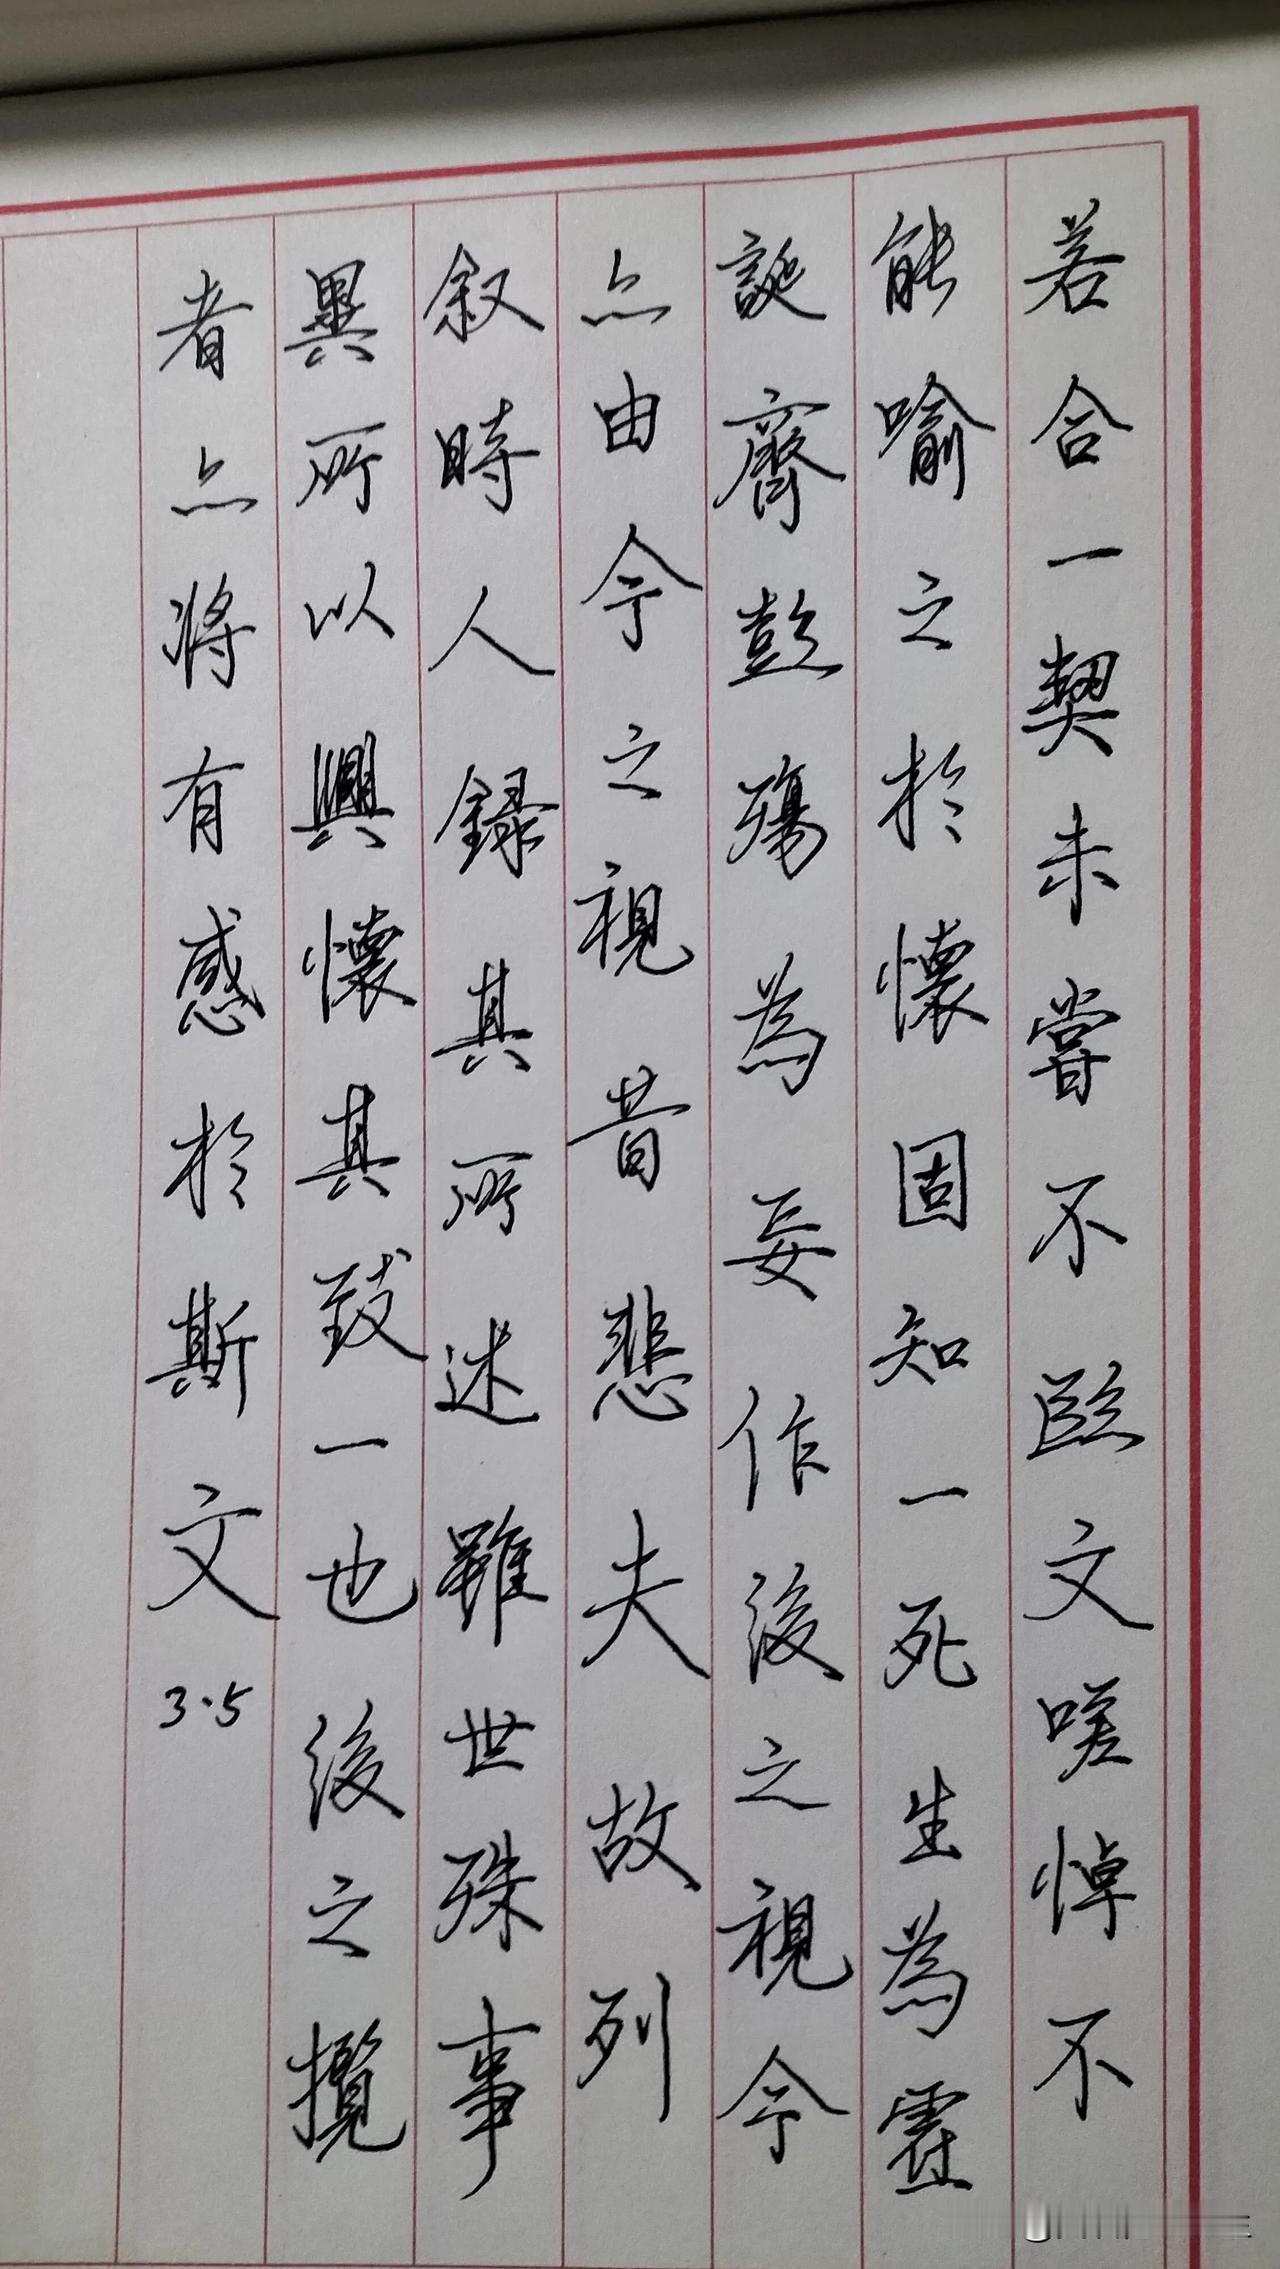 若合一契未嘗不臨文嗟悼不
能喻之於懷固知一死生為虛
誕齊彭殤為妄作後之視今
亦由今之視昔悲夫故列
叙時人錄其所述雖世殊事
異所以興懷其致一也後之攬
者亦將有感於斯文
3.5